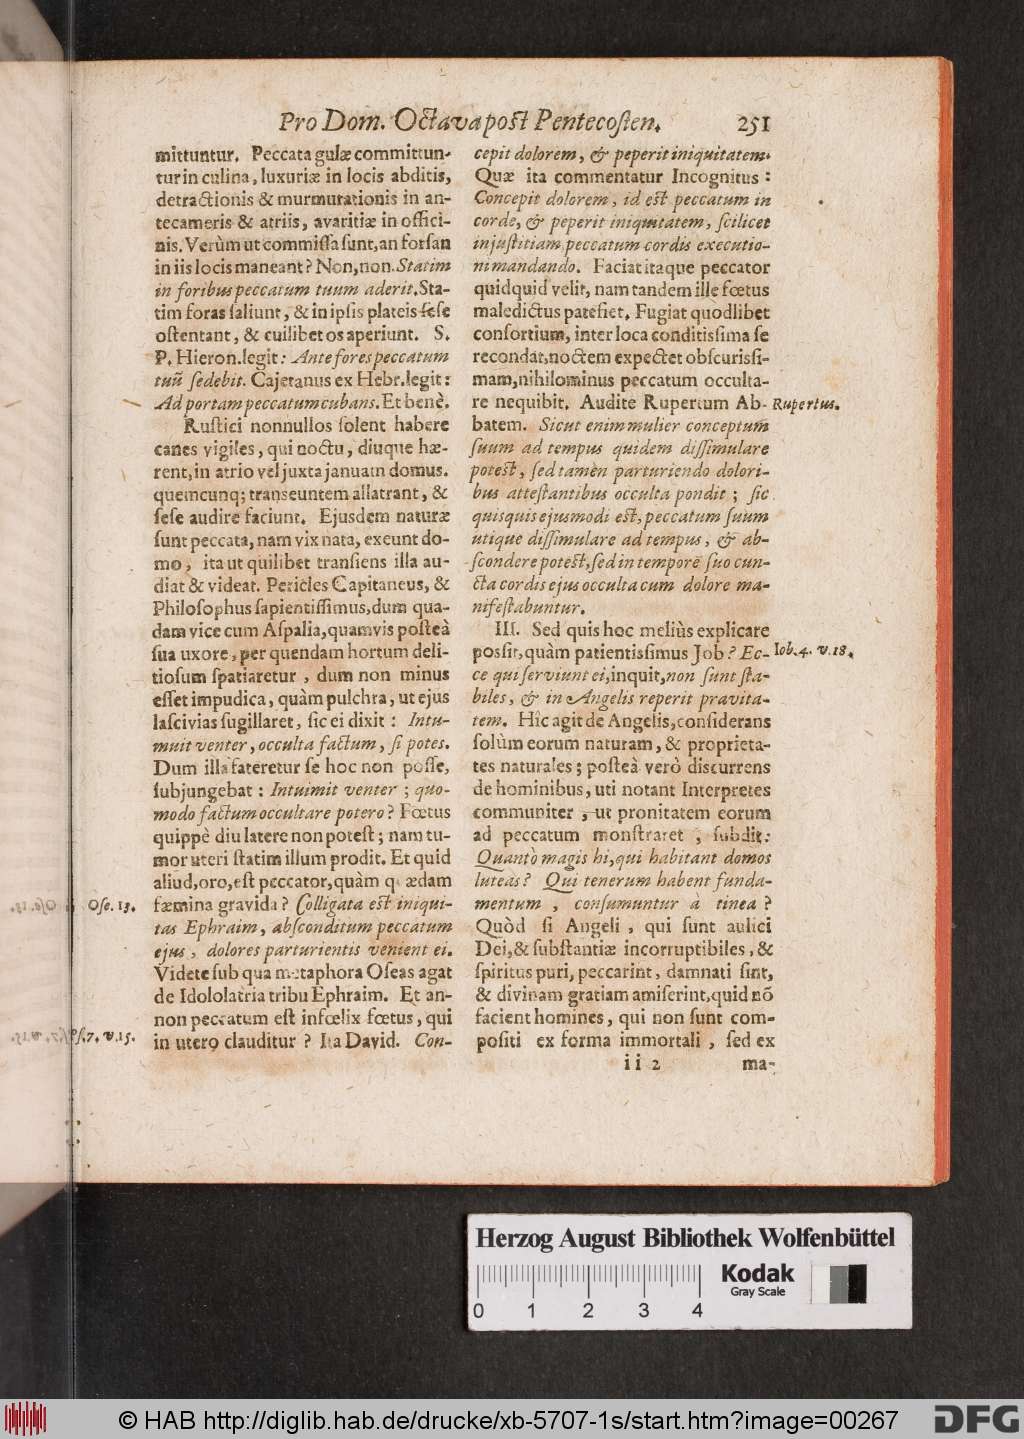 Pro Dom. Octava post Pentecosten. 251
mittuntur. Peccata gulæ committun-
tur in culina, luxuriæ in locis abditis,
detractionis & murmurationis in an-
tecameris & atriis, avaritiæ in offici-
nis. Verùm ut commiſſa ſunt, an forſan
in iis locis maneant? Non, non. Statim
in foribus peccatum tuum aderit. Sta-
tim foras ſaliunt, & in ipſis plateis ſeſe
oſtentant, & cuilibet os aperiunt. S.
P. Hieron. legit: Ante fores peccatum
tuũ ſedebit. Cajetanus ex Hebr. legit:
Ad portam peccatum cubans. Et benè.
Ruſtici nonnullos ſolent habere
canes vigiles, qui noctu, diuque hæ-
rent, in atrio vel juxta januam domus.
quemcunq; transeuntem allatrant, &
ſeſe audire faciunt. Ejusdem naturæ
ſunt peccata, nam vix nata, exeunt do-
mo, ita ut quilibet tranſiens illa au-
diat & videat. Pericles Capitaneus, &
Philoſophus ſapientiſſimus, dum qua-
dam vice cum Aſpalia, quamvis poſteà
ſua uxore, per quendam hortum deli-
tioſum ſpatiaretur, dum non minus
eſſet impudica, quàm pulchra, ut ejus
laſcivias ſugillaret, ſic ei dixit: Intu-
muit venter, occulta factum, ſi potes.
Dum illa fateretur ſe hoc non poſſe,
ſubjungebat: Intuimit venter; quo-
modo factum occultare potero? Fœtus
quippè diu latere non poteſt; nam tu-
mor uteri ſtatim illum prodit. Et quid
aliud, oro, eſt peccator, quàm quædam
Oſe. 13. fæmina gravida? Colligata eſt iniqui-
tas Ephraim, abſconditum peccatum
ejus, dolores parturientis venient ei.
Videte ſub qua metaphora Oſeas agat
de Idololatria tribu Ephraim. Et an-
non peccatum eſt infœlix fœtus, qui
Pſ. 7. v. 15. in utero clauditur? Ita David. Con-
cepit dolorem, & peperit iniquitatem.
Quæ ita commentatur Incognitus:
Concepit dolorem, id eſt peccatum in
corde, & peperit iniquitatem, ſcilicet
injuſtitiam peccatum cordis executio-
ni mandando. Faciat itaque peccator
quidquid velit, nam tandem ille fœtus
maledictus patefiet. Fugiat quòdlibet
conſortium, inter loca conditiſſima ſe
recondat, noctem expectet obſcuriſſi-
mam, nihilominus peccatum occulta-
re nequibit. Audite Rupertum Ab- Rupertus.
batem. Sicut enim mulier conceptum
ſuum ad tempus quidem diſſimulare
poteſt, ſed tamèn parturiendo dolori-
bus atteſtantibus occulta pondit; ſic
quisquis ejusmodi eſt, peccatum ſuum
utique diſſimulare ad tempus, & ab-
ſcondere poteſt, ſed in tempore ſuo cun-
cta cordis ejus occulta cum dolore ma-
nifeſtabuntur.
III. Sed quis hoc meliùs explicare
poſſit, quàm patientiſſimus Job? Ec- Iob. 4. v. 18.
ce qui ſerviunt ei, inquit, non ſunt ſta-
biles, & in Angelis reperit pravita-
tem. Hic agit de Angelis, conſiderans
ſolùm eorum naturam, & proprieta-
tes naturales; poſteà verò discurrens
de hominibus, uti notant Interpretes
communiter, ut pronitatem eorum
ad peccatum monſtraret, ſubdit:
Quantò magis hi, qui habitant domos
luteas? Qui tenerum habent funda-
mentum, conſumuntur à tinea?
Quòd ſi Angeli, qui ſunt aulici
Dei, & ſubſtantiæ incorruptibiles, &
ſpiritus puri, peccarint, damnati ſint,
& divinam gratiam amiſerint, quid nõ
facient homines, qui non ſunt com-
poſiti ex forma immortali, ſed ex
ii 2 ma-
Herzog August Bibliothek Wolfenbüttel
0 1 2 3 4
Kodak
Gray Scale
© HAB http://diglib.hab.de/drucke/xb-5707-1s/start.htm?image=00267
DFG